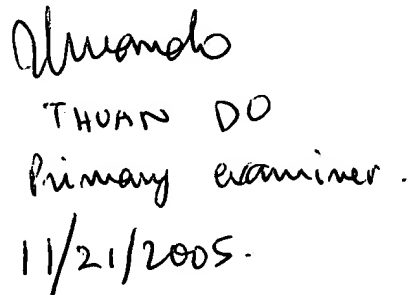 Thuando
THUAN DO
Primary examiner.
11/21/2005.